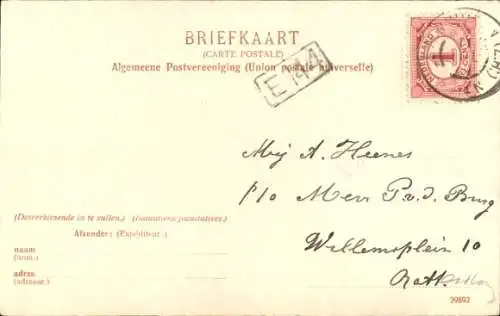 BRIEFKAART
(CARTE POSTALE)
Algemeene Postvereeniging (Union postale universelle)
E 144
NEDERLAND
1
CENT
Mej A. Heenes
p/o Mevr P. v. d. Burg
Willemsplein 10
Rott.
(Desverkiezende in te vullen.) (Indications facultatives.)
Afzender: (Expéditeur.)
naam
(nom.)
adres
(adresse.)
39892